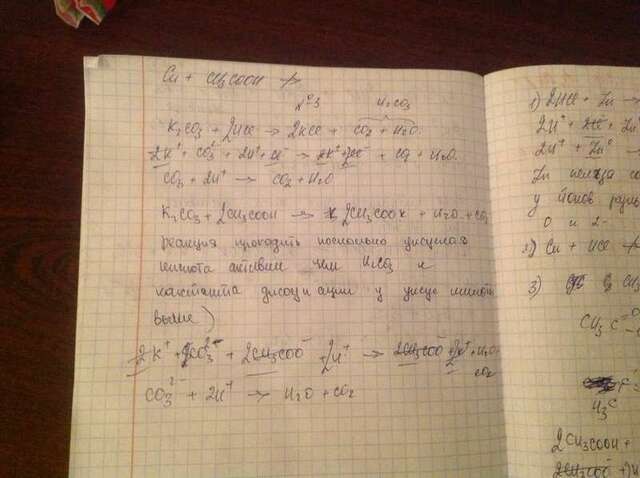 Cu + CH3COOH ↛
№3 H2CO3
K2CO3 + 2HCl → 2KCl + CO2 + H2O
2K⁺ + CO3²⁻ + 2H⁺ + Cl⁻ → 2K⁺ + 2Cl⁻ + CO2 + H2O
CO3 + 2H⁺ → CO2 + H2O
K2CO3 + 2CH3COOH → 2CH3COOK + H2O + CO2
реакция проходить поскольку уксусная
кислота активнее чем H2CO3 и
константа диссоциации у уксус кислоты
выше)
2K⁺ + CO3²⁻ + 2CH3COO⁻ + 2H⁺ → 2CH3COO⁻ + 2K⁺ + H2O
CO2
CO3²⁻ + 2H⁺ → H2O + CO2
1) 2HCl + Zn →
2H⁺ + 2Cl⁻ + Zn⁰
2H⁺ + Zn⁰ →
Zn
у
0 и 2-
2) Cu + HCl ↛
3)
CH3 C O
H3C
2CH3COOH +
2CH3COO⁻ +